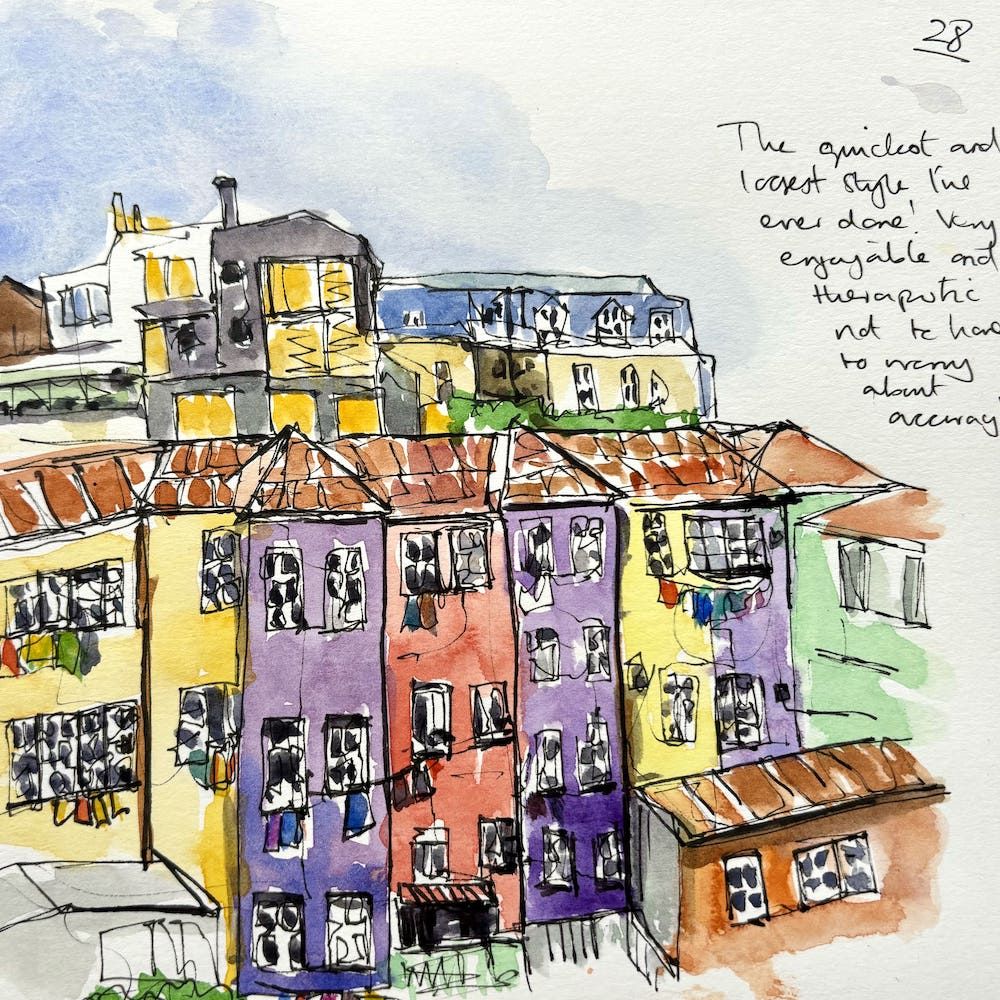 28
The quickest and
loosest style I've
ever done! Very
enjoyable and
therapeutic
not to have
to worry
about
accuracy